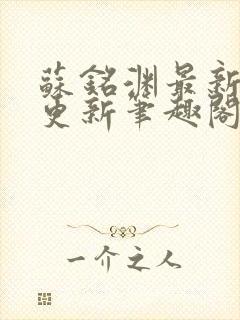 蘇銘淵最新
更新筆趣閣
一介之人